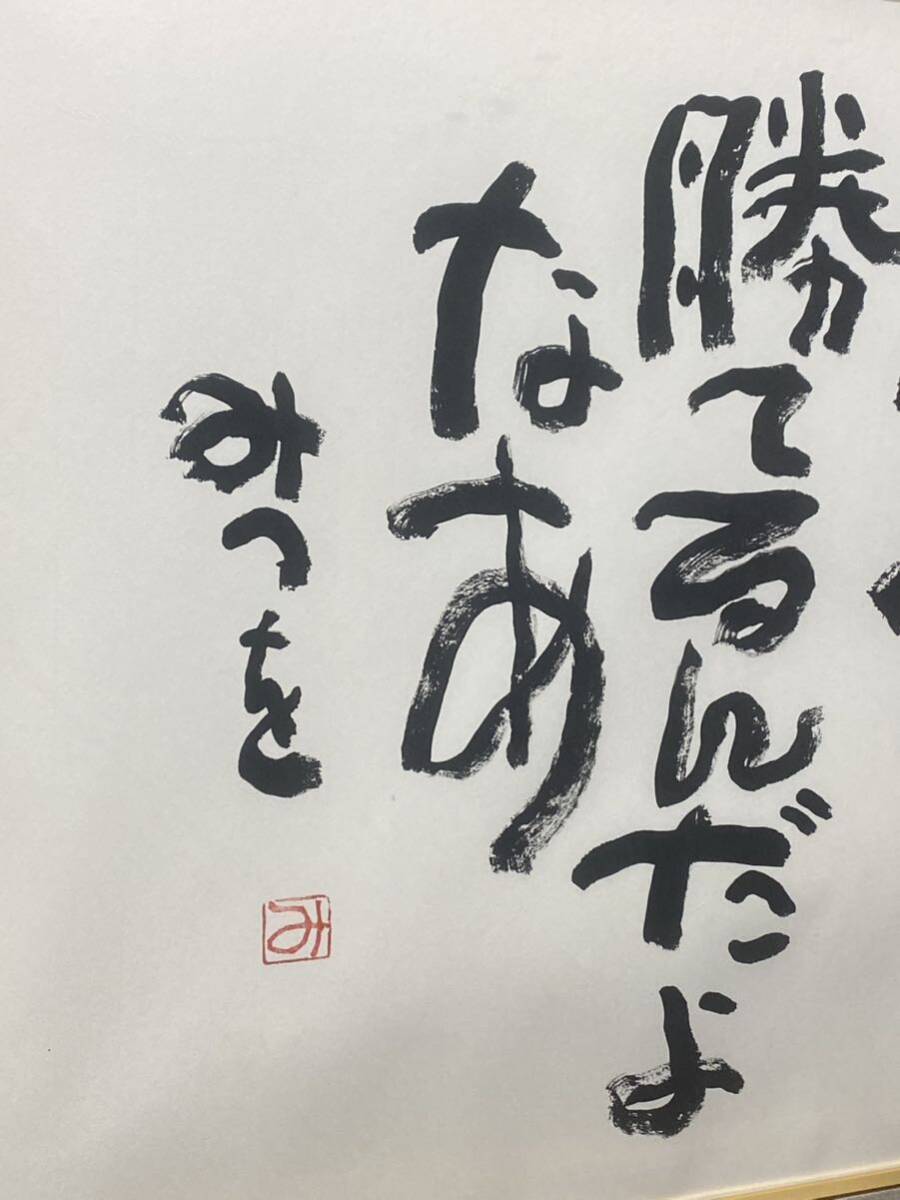 勝てるんだよ
なあ
みつを
み